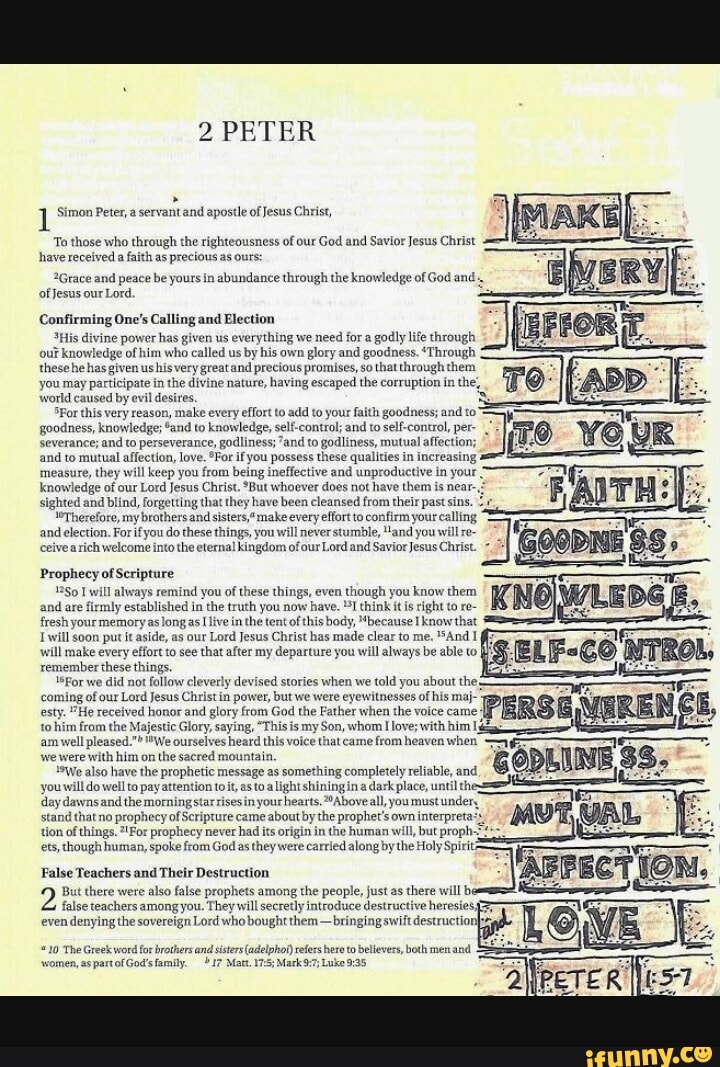 2 PETER
1 Simon Peter, a servant and apostle of Jesus Christ,
To those who through the righteousness of our God and Savior Jesus Christ
have received a faith as precious as ours:
²Grace and peace be yours in abundance through the knowledge of God and
of Jesus our Lord.
Confirming One's Calling and Election
³His divine power has given us everything we need for a godly life through
our knowledge of him who called us by his own glory and goodness. ⁴Through
these he has given us his very great and precious promises, so that through them
you may participate in the divine nature, having escaped the corruption in the
world caused by evil desires.
⁵For this very reason, make every effort to add to your faith goodness; and to
goodness, knowledge; ⁶and to knowledge, self-control; and to self-control, per-
severance; and to perseverance, godliness; ⁷and to godliness, mutual affection;
and to mutual affection, love. ⁸For if you possess these qualities in increasing
measure, they will keep you from being ineffective and unproductive in your
knowledge of our Lord Jesus Christ. ⁹But whoever does not have them is near-
sighted and blind, forgetting that they have been cleansed from their past sins.
¹⁰Therefore, my brothers and sisters,ᵃ make every effort to confirm your calling
and election. For if you do these things, you will never stumble, ¹¹and you will re-
ceive a rich welcome into the eternal kingdom of our Lord and Savior Jesus Christ.
Prophecy of Scripture
¹²So I will always remind you of these things, even though you know them
and are firmly established in the truth you now have. ¹³I think it is right to re-
fresh your memory as long as I live in the tent of this body, ¹⁴because I know that
I will soon put it aside, as our Lord Jesus Christ has made clear to me. ¹⁵And I
will make every effort to see that after my departure you will always be able to
remember these things.
¹⁶For we did not follow cleverly devised stories when we told you about the
coming of our Lord Jesus Christ in power, but we were eyewitnesses of his maj-
esty. ¹⁷He received honor and glory from God the Father when the voice came
to him from the Majestic Glory, saying, "This is my Son, whom I love; with him I
am well pleased."ᵇ ¹⁸We ourselves heard this voice that came from heaven when
we were with him on the sacred mountain.
¹⁹We also have the prophetic message as something completely reliable, and
you will do well to pay attention to it, as to a light shining in a dark place, until the
day dawns and the morning star rises in your hearts. ²⁰Above all, you must under-
stand that no prophecy of Scripture came about by the prophet's own interpreta-
tion of things. ²¹For prophecy never had its origin in the human will, but proph-
ets, though human, spoke from God as they were carried along by the Holy Spirit.
False Teachers and Their Destruction
2 But there were also false prophets among the people, just as there will be
false teachers among you. They will secretly introduce destructive heresies,
even denying the sovereign Lord who bought them — bringing swift destruction
ᵃ 10 The Greek word for brothers and sisters (adelphoi) refers here to believers, both men and
women, as part of God's family. ᵇ 17 Matt. 17:5; Mark 9:7; Luke 9:35
MAKE
EVERY
EFFORT
TO ADD
TO YOUR
FAITH:
GOODNESS,
KNOWLEDGE,
SELF-CONTROL,
PERSEVERENCE,
GODLINESS,
MUTUAL
AFFECTION,
and LOVE
2 PETER 1:5-7
ifunny.co